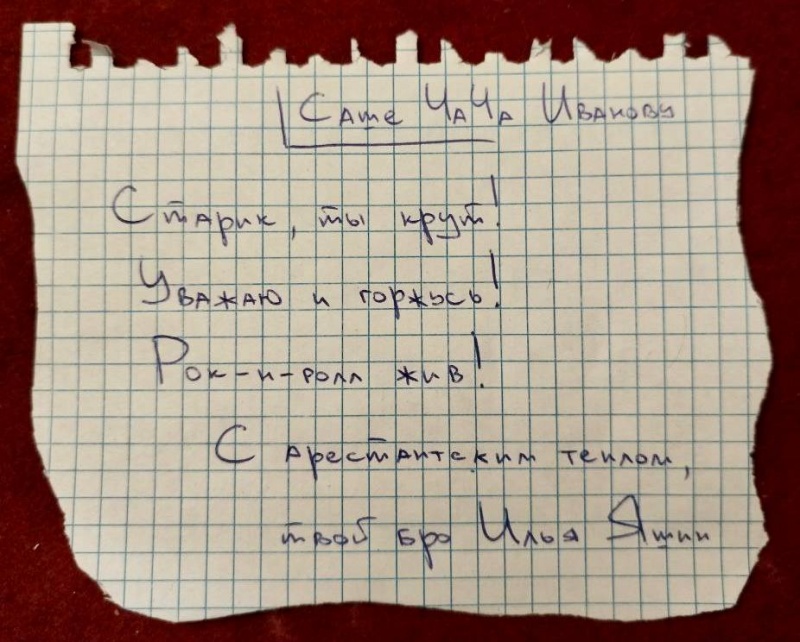 Саше ЧаЧа Иванову
Старик, ты крут!
Уважаю и горжусь!
Рок-н-ролл жив!
С арестантским теплом,
твой бро Илья Яшин